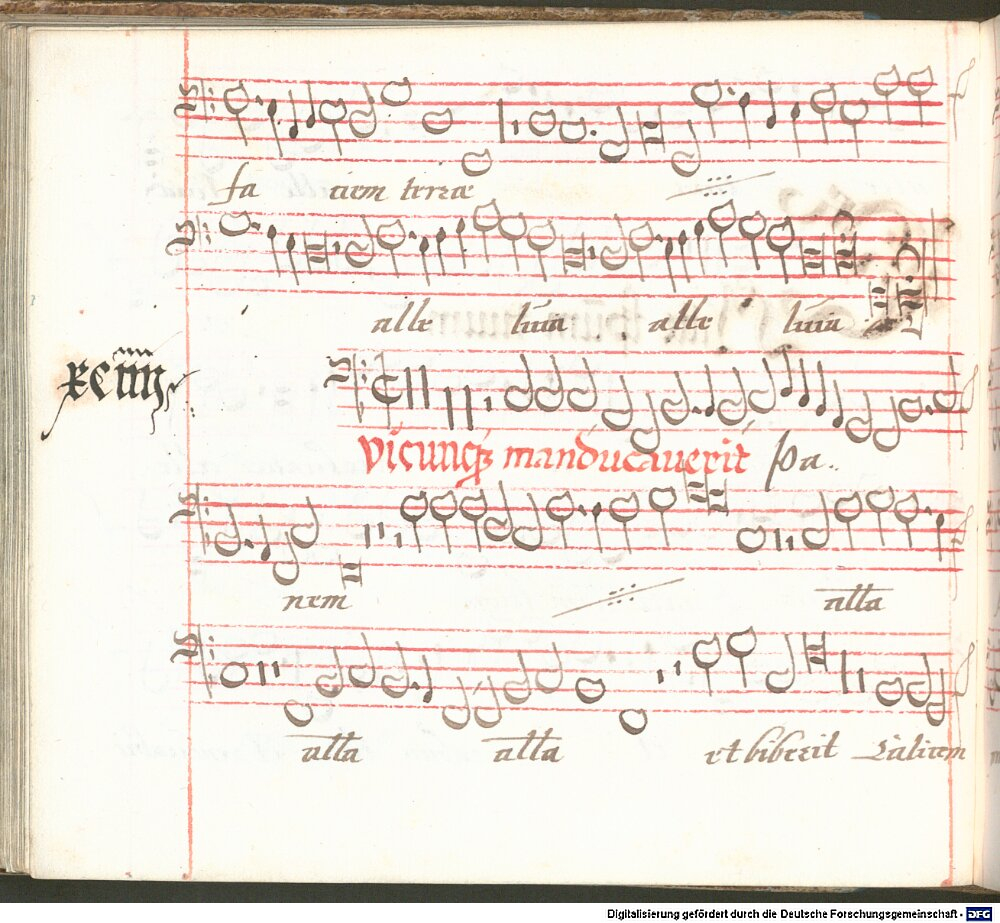 fa ciem terræ
alle luia alle luia
xciiij
Vicunq₃ manducaverit pa..
nem alla
alla alla et biberit Calicem
Digitalisierung gefördert durch die Deutsche Forschungsgemeinschaft - DFG